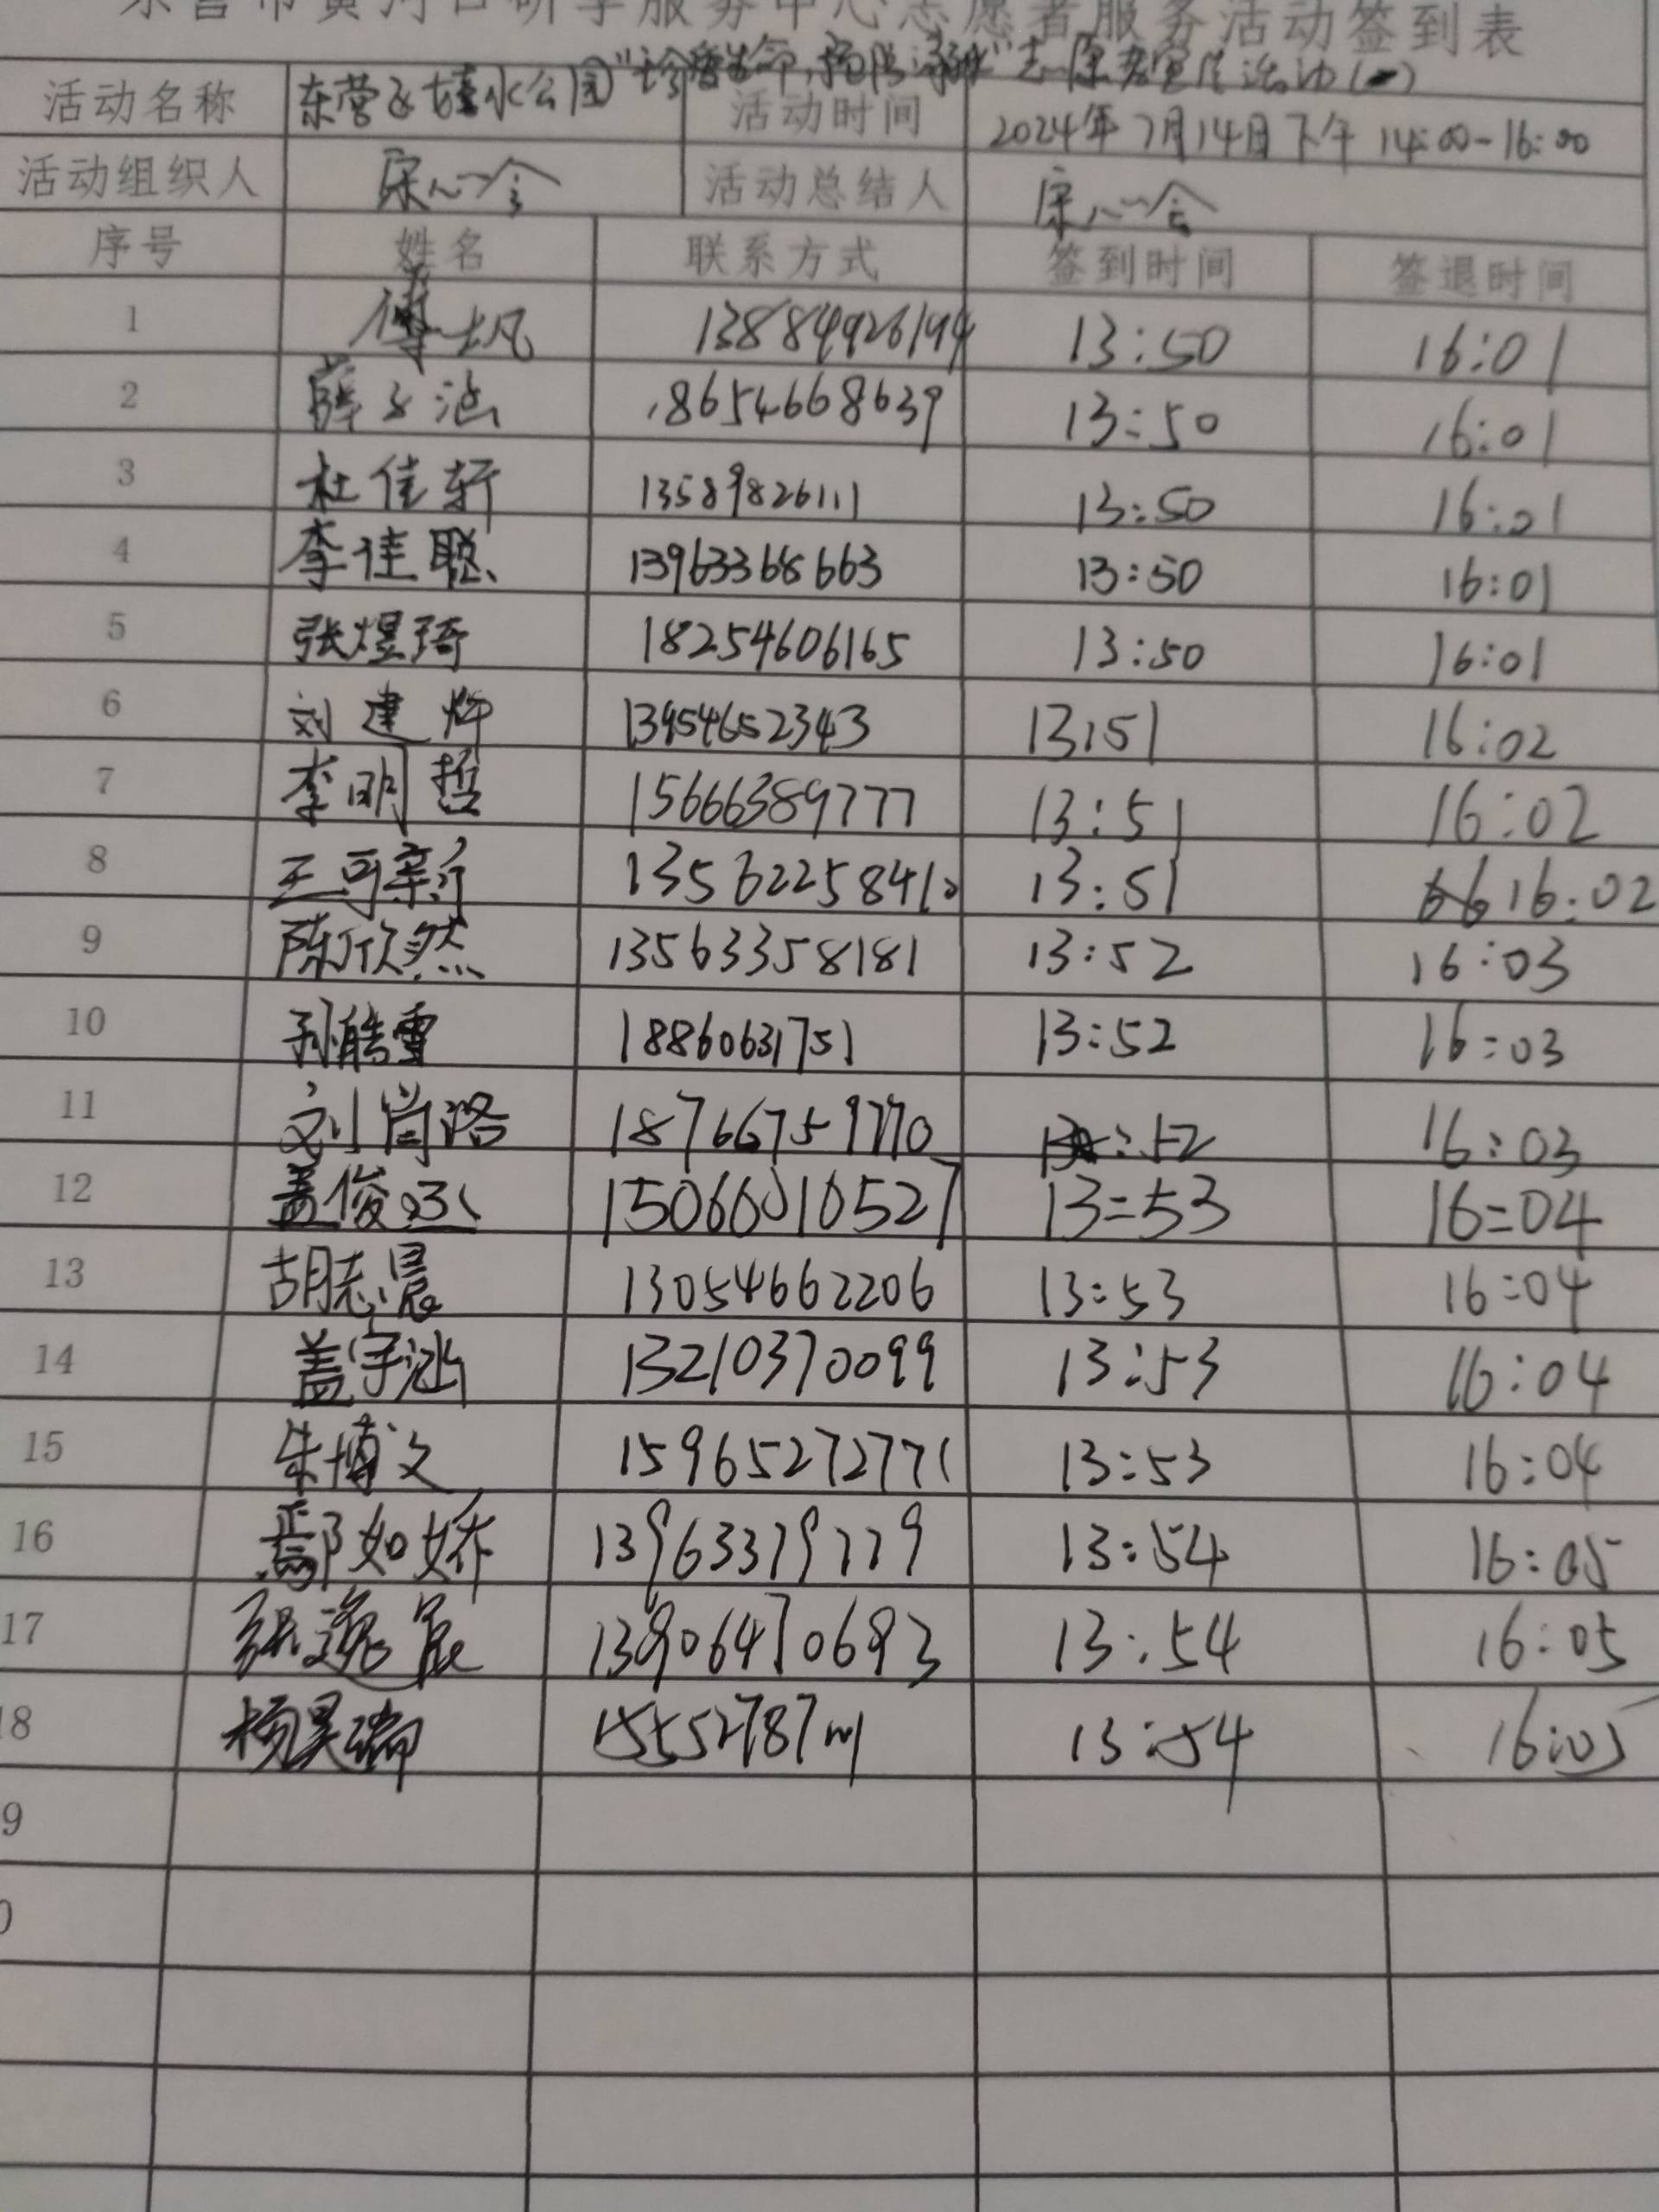 东营市黄河口研学服务中心志愿者服务活动签到表
活动名称 东营 水公园“珍爱生命，预防溺水”志愿者宣传活动(一)
活动时间 2024年7月14日下午 14:00-16:00
活动组织人 活动总结人
序号 姓名 联系方式 签到时间 签退时间
1 傅士凡 13884926194 13:50 16:01
2 薛子涵 18654668639 13:50 16:01
3 杜佳轩 13589826111 13:50 16:01
4 李佳聪 13963368663 13:50 16:01
5 张煜琦 18254606165 13:50 16:01
6 刘建烨 13954652343 13:51 16:02
7 李明哲 15666389777 13:51 16:02
8 王可新 13562258410 13:51 16:02
9 陈欣然 13563358181 13:52 16:03
10 孙皓雪 18860631751 13:52 16:03
11 刘尚洛 18766759770 13:52 16:03
12 盖俊丞 15066010527 13:53 16:04
13 胡志晨 13054662206 13:53 16:04
14 盖宇涵 13210370099 13:53 16:04
15 朱博文 15965272771 13:53 16:04
16 鄢如娇 13963379779 13:54 16:05
17 张逸宸 13906470693 13:54 16:05
18 杨昊瑞 13:54 16:05
9
0